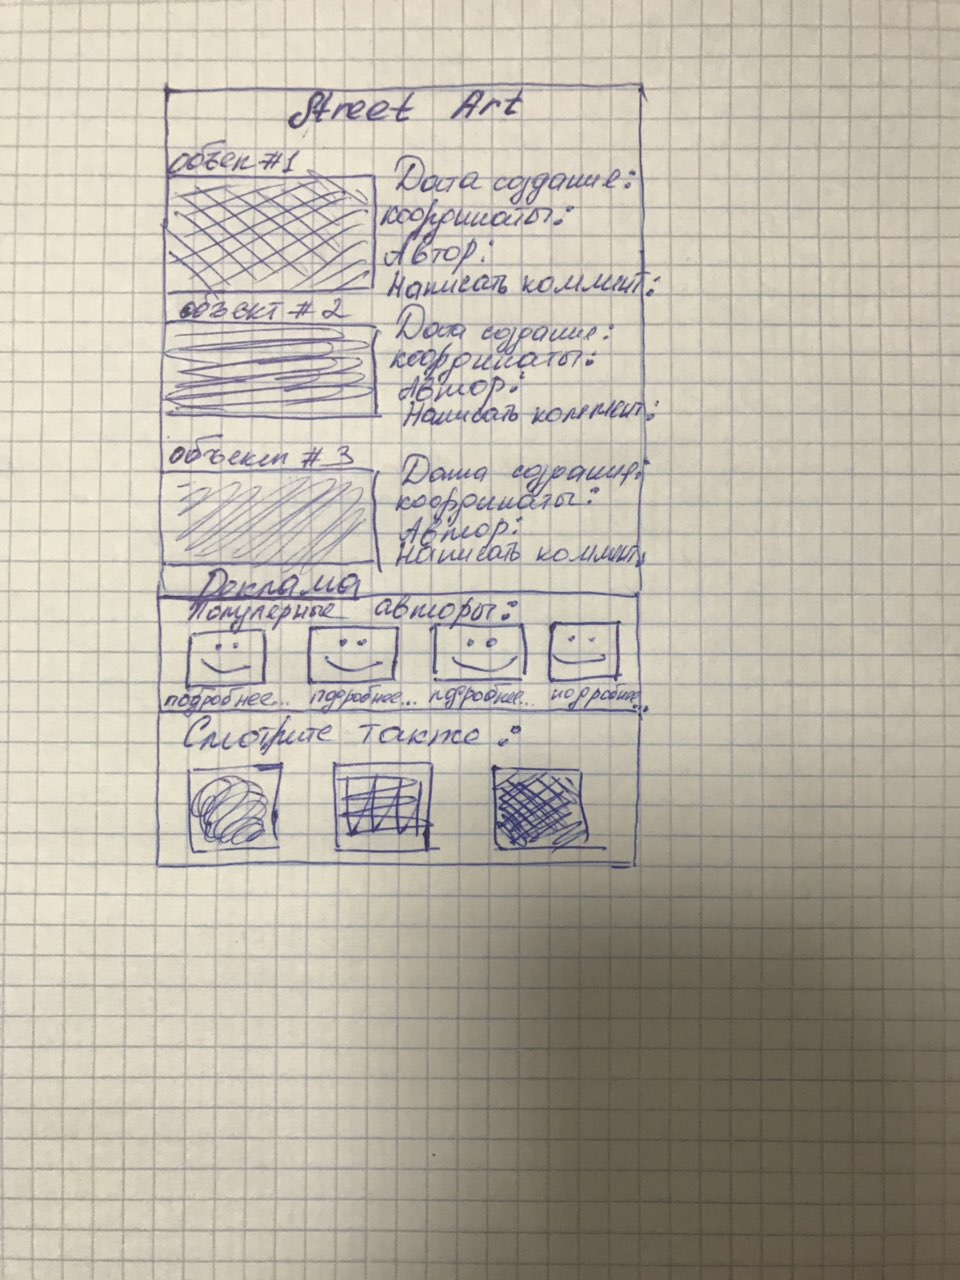 Street Art
объек #1
Дата создание:
координаты:
Автор:
Написать коммит:
объект # 2
Дата создание:
координаты:
Автор:
Написать коммент:
объект # 3
Дата создание:
координаты:
Автор:
Написать коммнт:
Реклама
Популерные авторы:
подробнее... подробнее... подробнее... подробнее...
Смотрите также: